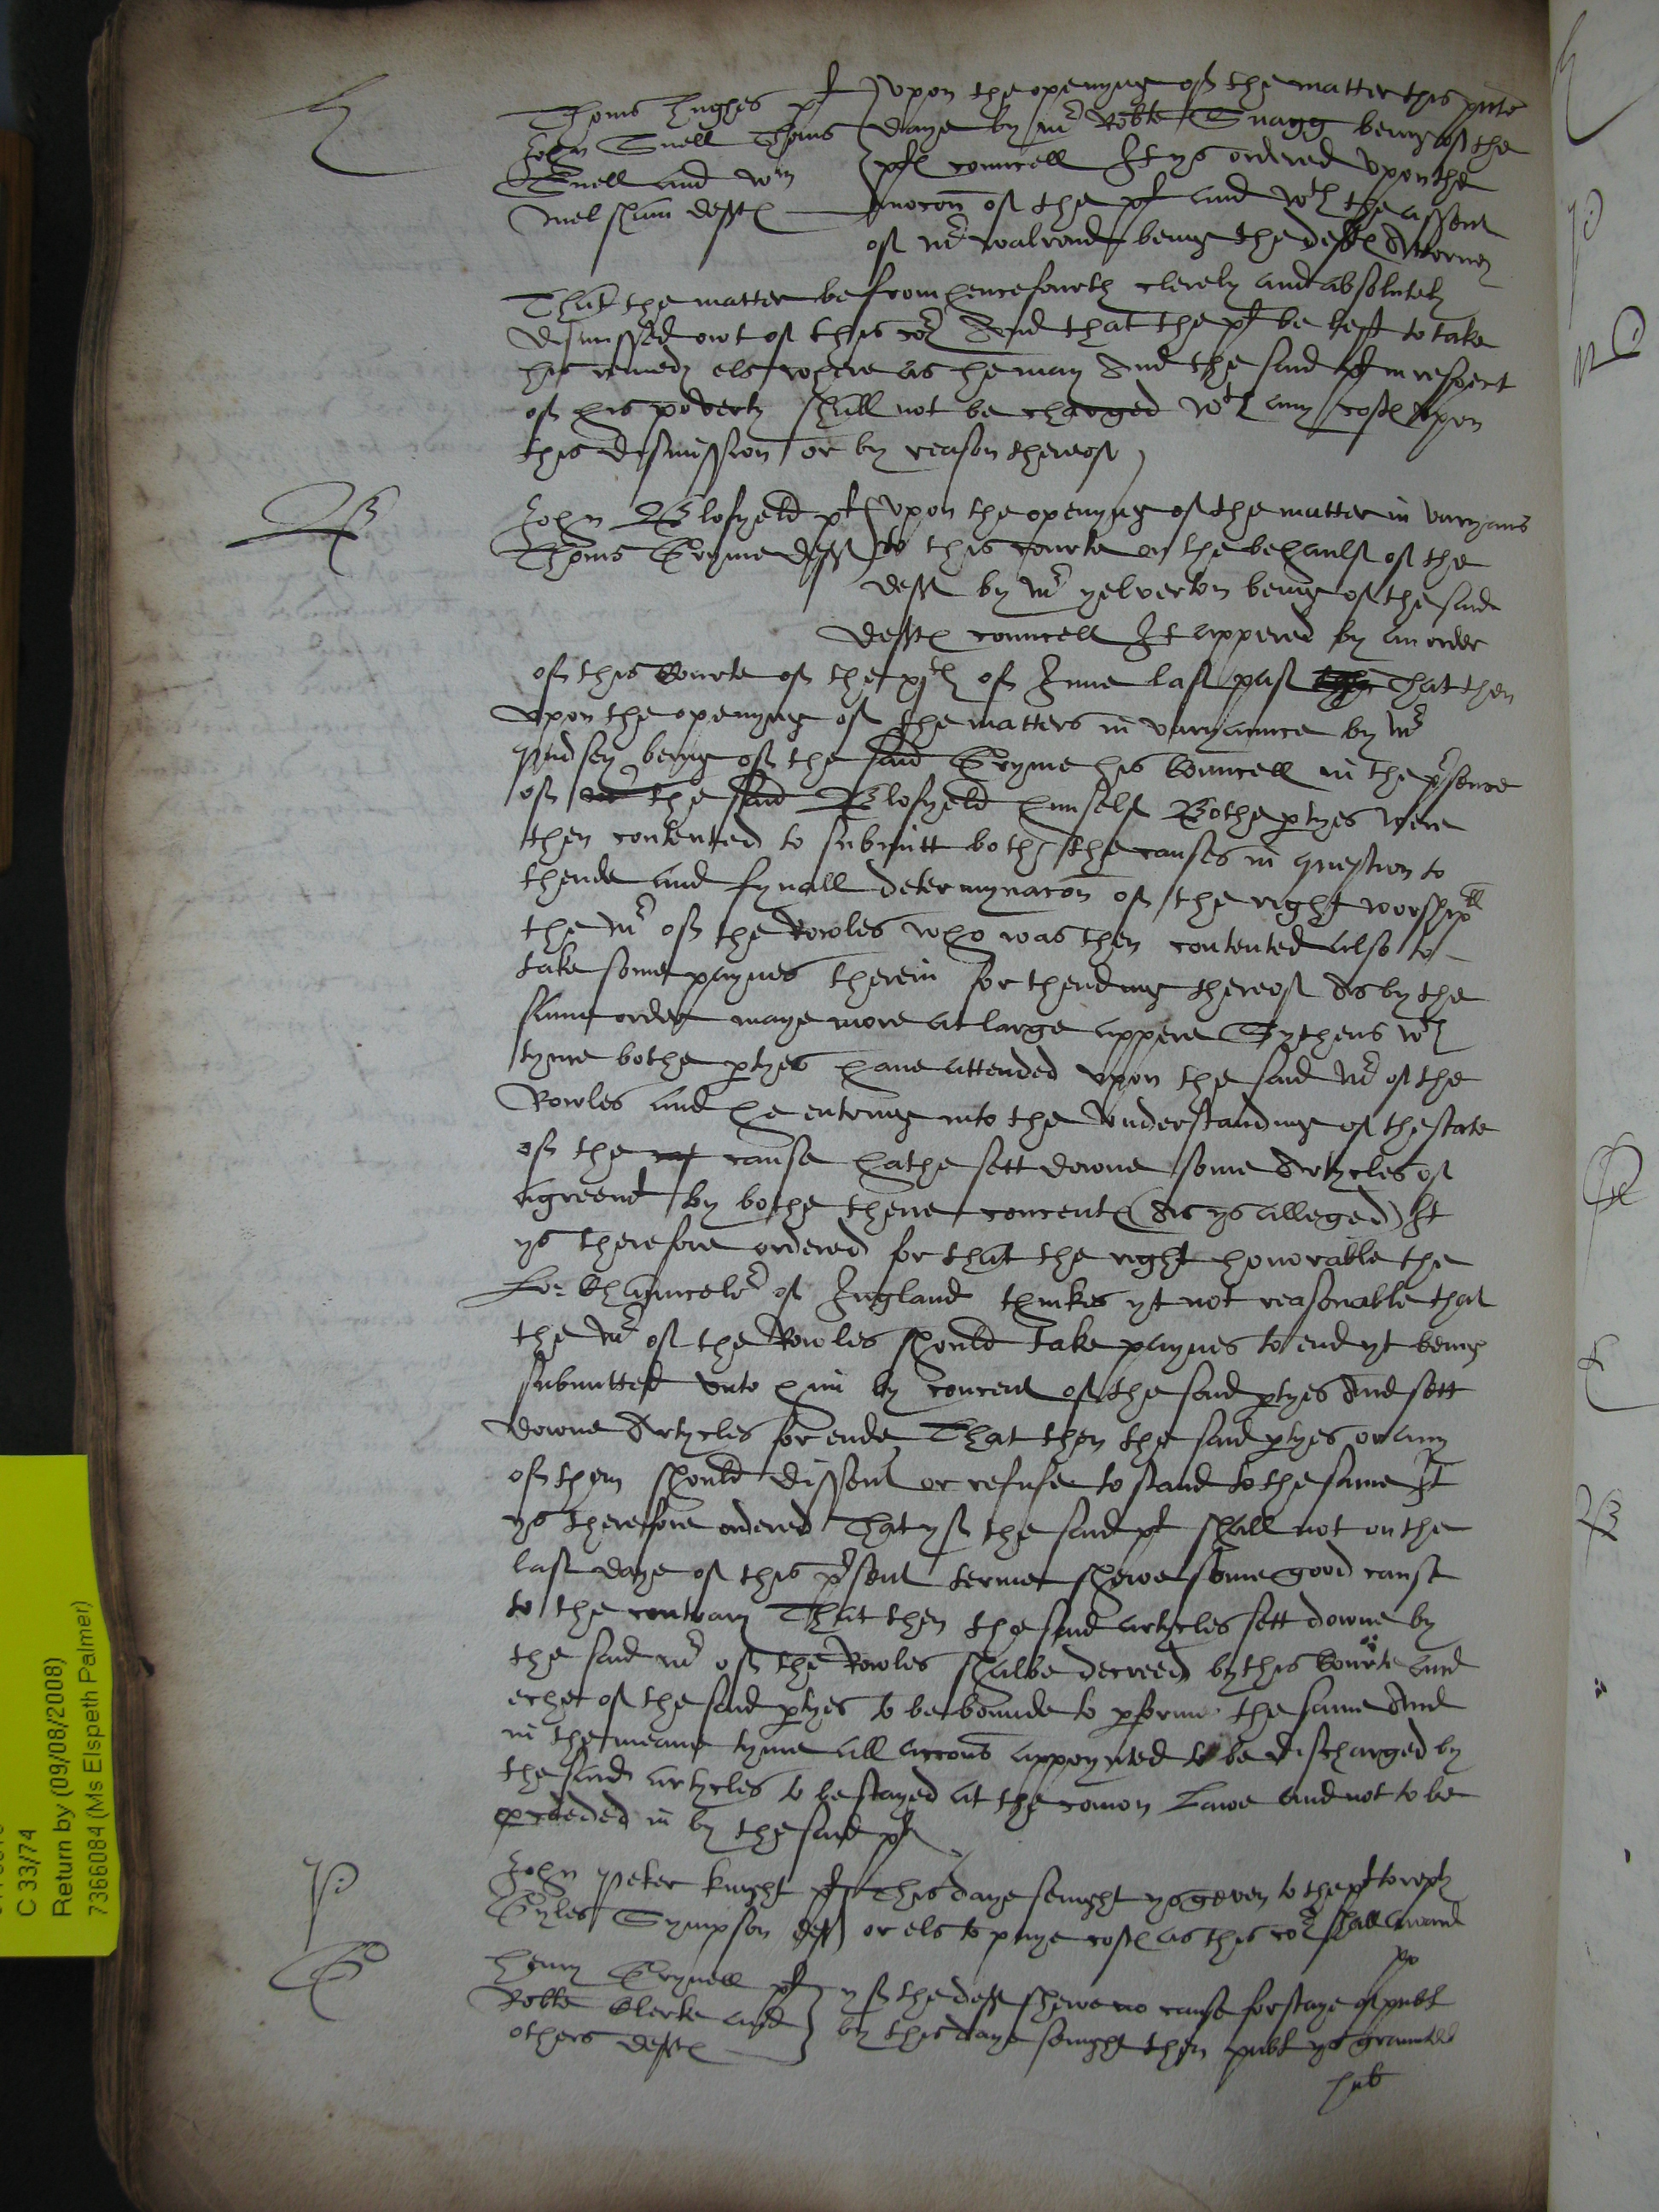 H
Thoms Hughes plt
John Snell Thoms
Snell and Wm
Melsham defftes
upon the openyng of the matter this pnte
daye by Mr Robte Snagg beinge of the
pltes councell It ys ordered upon the
mocon of the plt and wth the assent
of Mr Walrond beinge the defftes Attorney
That the matter be from hencefourth clerely and absolutely
dismissed owt of this cort And that the plt be lefft to take
his remedy elswhere as he may And the said plt in respect
of his poverty shall not be charged wth any costes upon
this dismission or by reason thereof
B
John Blofyeld plt
Thoms Gryme defft
upon the openyng of the matter in varyans
to this courte on the behaulf of the
defft by Mr yelverton beinge of the said
defftes councell It appered by an order
of this Courte of the xjth of June last past That then
upon the openyng of the matters in varyaunce by Mr
beyng of the said Gryme his Councell in the psence
of the said Blofyeld himself Bothe ptyes were
then contented to submitt both the causes in question to
thende and fynall determynacon of the right worshipll
the Mr of the Rowles who was then contented also to
take some paynes therein for thending thereof As by the
same order maye more at large appere Sythens wch
tyme bothe ptyes have attended upon the said Mr of the
Rowles and he entring into the understanding of the state
of the cause hathe sett downe some Artycles of
agreemt by bothe there concentes (As ys alleged) It
ys therefore ordered for that the right honorable the
Lo: Chauncelor of England thinkes yt not reasonable that
the Mr of the Rowles should take paynes to end yt being
submitted unto him by concent of the said ptyes And sett
downe Artycles for ende That then the said ptyes or any
of them should dissent or refuse to stand to the same It
ys therefore ordered That yf the said plt shall not on the
last daye of this psent terme shewe some good cause
to the contrary That then the said artycles sett downe by
the said Mr of the Rowles shalbe decreed by this Courte and
eche of the said ptyes to be bounde to pforme the same And
in the meane tyme all accons appoynted to be discharged by
the said artycles to be stayed at the comon Lawe and not to be
pceded in by the said plt
P
John Peter knight plt
Gyles Sympson defft
This daye sevnight ys geven to the plt to reply
or els to paye costes as this cort shall award
G
Henry Grynell plt
Robte Clerke and
others defftes
yf the defft shewe no cause for staye of publ
by this daye sevnight then publ ys graunted
C 33/74
Return by (09/08/2008)
7366084 (Ms Elspeth Palmer)